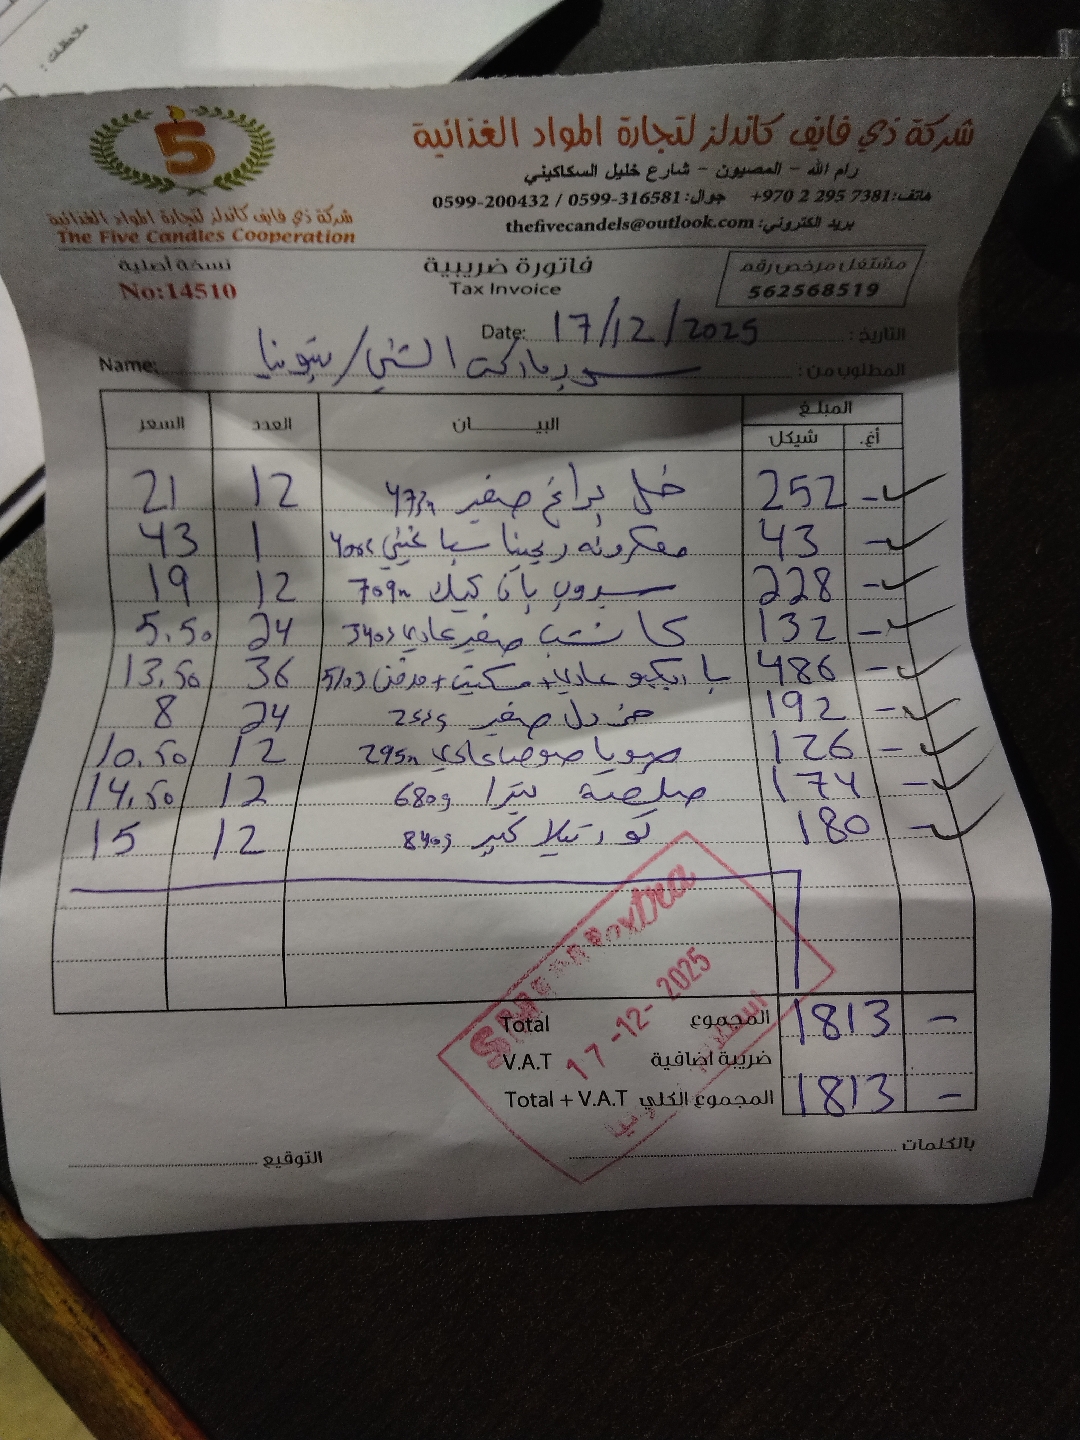 ملاحظات :
شركة ذي فايف كاندلز لتجارة المواد الغذائية
رام الله - المصيون - شارع خليل السكاكيني
هاتف: +970 2 295 7381 جوال: 0599-316581 / 0599-200432
بريد الكتروني: thefivecandels@outlook.com
5
شركة ذي فايف كاندلز لتجارة المواد الغذائية
The Five Candles Cooperation
مشتغل مرخص رقم
562568519
فاتورة ضريبية
Tax Invoice
نسخة أصلية
No:14510
التاريخ: Date: 17/12/2025
المطلوب من: سوبرماركت الشني / بيتونيا Name:
المبلغ البيـــــان العدد السعر
أغ. شيكل
- 252 خل براغ صغير 473m 12 21
- 43 معكرونه ريجينا سباغيتي 1 43
- 228 سيروب بان كيك 709m 12 19
- 132 كاتشب صغير عادي 340g 24 5.50
- 486 باربكيو عادي + مسكيت + مدخن 510g 36 13.50
- 192 خردل صغير 24 8
- 126 صويا صوص عادي 295m 12 10.50
- 174 صلصة بيتزا 680g 12 14.50
- 180 تورتيلا كبير 840g 12 15
المجموع Total 1813 -
ضريبة اضافية V.A.T
المجموع الكلي Total + V.A.T 1813 -
extra
17-12-2025
بالكلمات
التوقيع